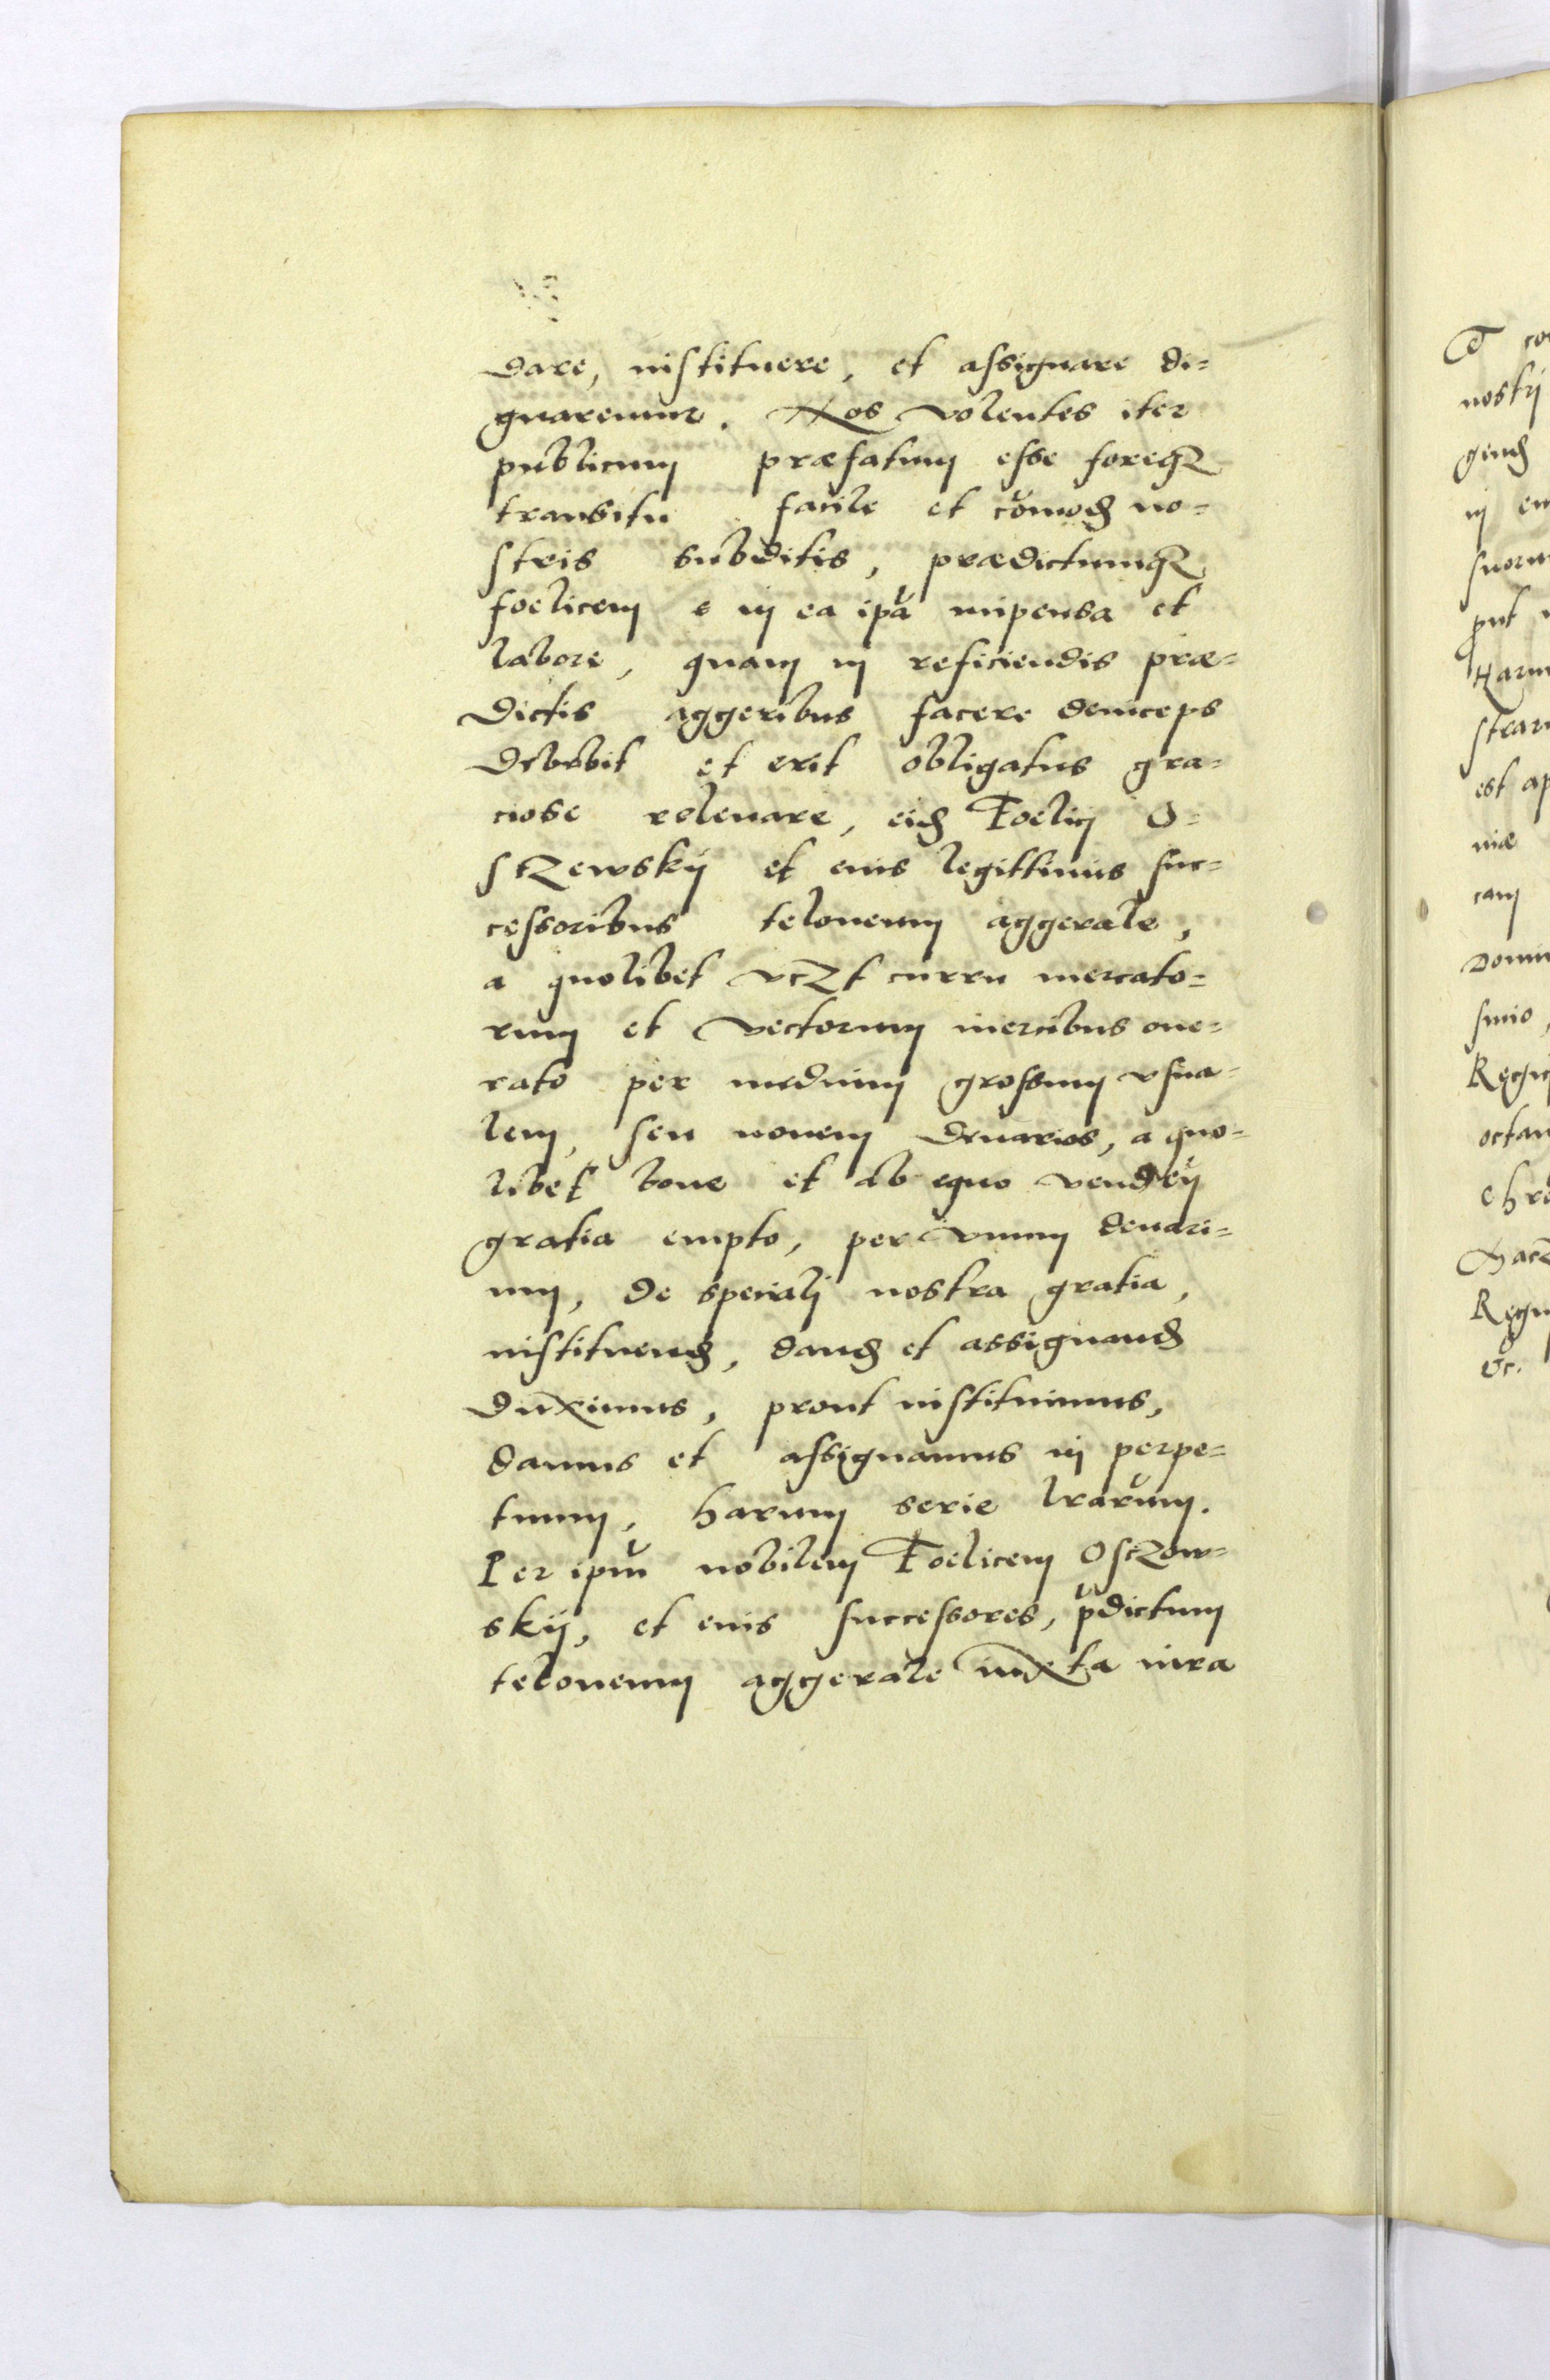 dare, instituere, et assignare di=
gnaremur. Nos volentes iter
publicum præfatum esse foreqꝫ
transitu facile et com̃od no=
stris subditis, prædictumqꝫ
foelicem e in ea ip̃a impensa et
labore, quam in reficiendis præ=
dictis aggeribus facere deinceps
debebit et erit obligatus gra=
ciose releuare, eid Foelici O=
sczewskij et eius legittimis suc=
cessoribus teloneum aggerale,
a quolibet vczt curru mercato=
rum et vectorum mercibus one=
rato per medium grossum vsua=
lem, seu nouem denarios, a quo=
libet boue et ab equo venden̄
gratia empto, per vnum denari=
um, de speciali nostra gratia,
instituend, dand et assignand
duximus, prout instituimus,
damus et assignamus in perpe=
tuum, harum serie lr̃arum.
Per ip̃m nobilem Foelicem Osczew=
skij, et eius successores, p̃dictum
teloneum aggerale iuxta iura
Et co
nostrj
gend
in
suorum
put
Haru
strar
est ap
niæ
cam
Domi
smo,
Regn
octau
Chr
Regn
etc.